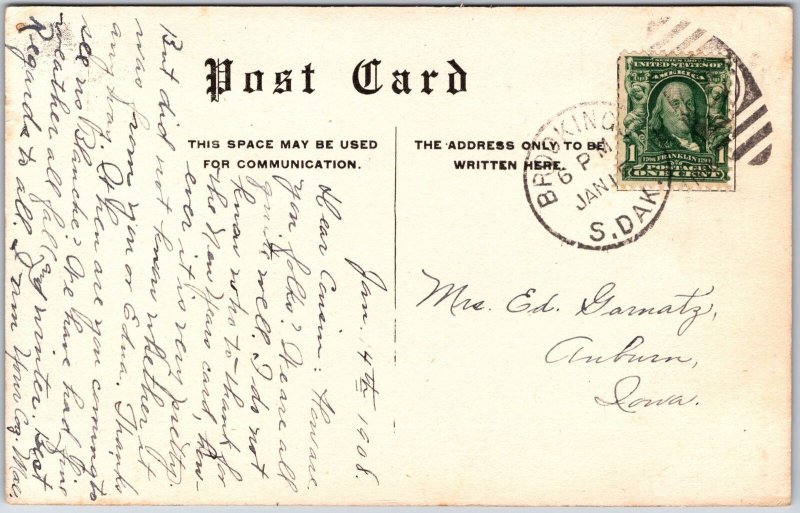 Post Card
THIS SPACE MAY BE USED
FOR COMMUNICATION.
THE ADDRESS ONLY TO BE
WRITTEN HERE.
SERIES 1902
UNITED STATES OF
AMERICA
1
1706 FRANKLIN 1790
POSTAGE
ONE CENT
1
BROOKING
6 PM
JAN 1
S. DAK.
Mrs. Ed. Garnatz,
Auburn,
Iowa.
Jan. 14th 1908.
Dear Cousin: How are
you folks? We are all
quite well. I do not
know who to thank for
the New Years card, how-
ever it is very pretty.
But did not know whether it
was from you or Edna. Thanks
any way. When are you coming to
see us Blanche? We have had fine
weather all fall and winter. Best
Regards to all. I am Your Coz. Mae.